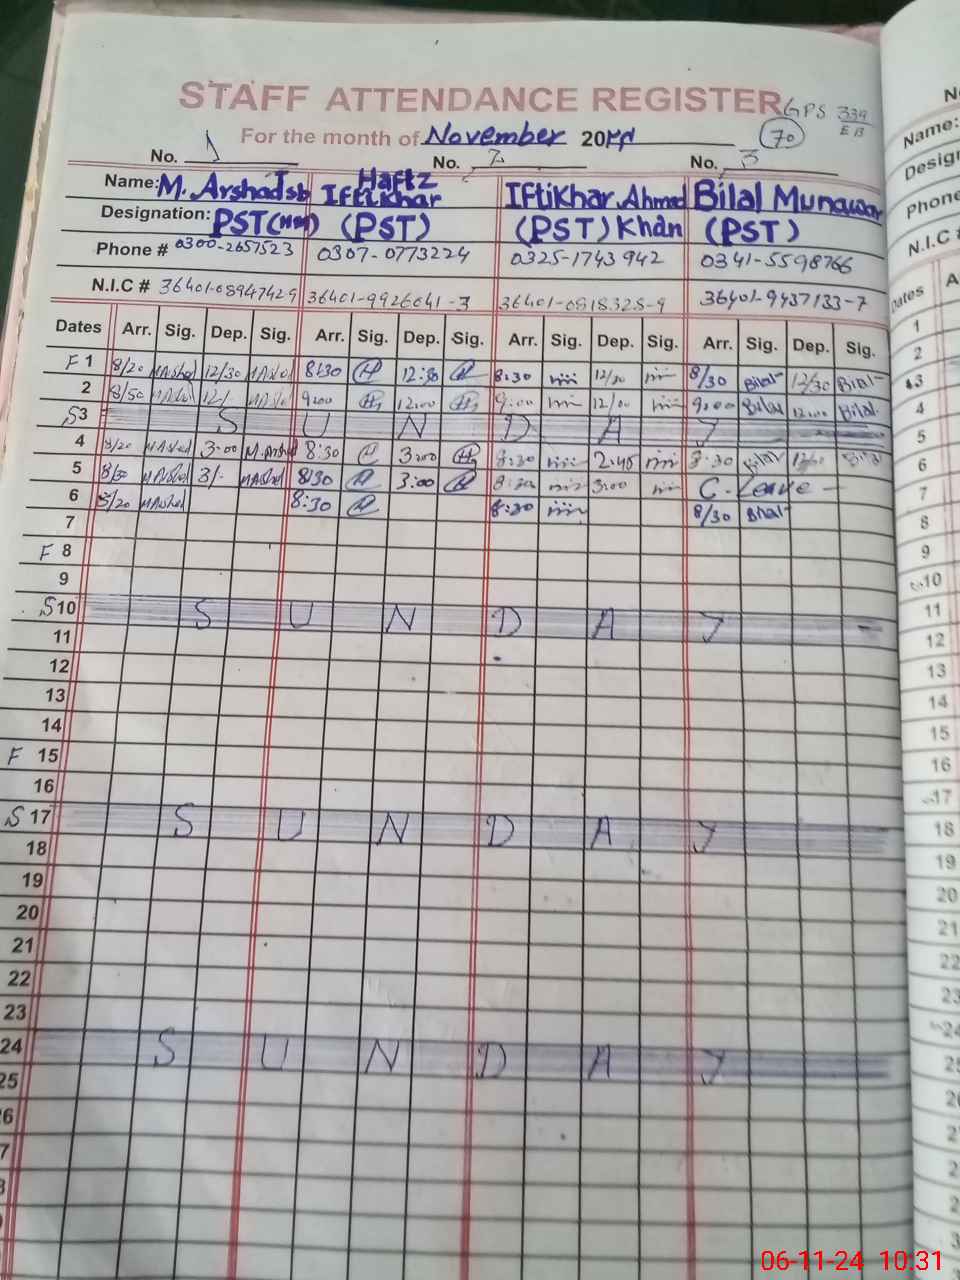 STAFF ATTENDANCE REGISTER GPS 339
EB
For the month of November 20 70
No. 1 No. 2 No. 3
Name: M. Arshad Hafiz Iftikhar Iftikhar Ahmad Khan Bilal Munawar
Designation: PST (PST) (PST) (PST)
Phone # 0300-2657523 0307-0773224 0325-1743942 0341-5598766
N.I.C # 36401-08947429 36401-9926041-3 36401-0918328-9 36401-9437133-7
Dates Arr. Sig. Dep. Sig. Arr. Sig. Dep. Sig. Arr. Sig. Dep. Sig. Arr. Sig. Dep. Sig.
F 1 8/20 MArshad 12/30 8:30 12:30 8:30 12/30 8/30 Bilal 12/30 Bilal
2 8/50 MArshad 12/- 9:00 12:00 9:00 12/00 9:00 Bilal 12:00 Bilal
S 3 S U N D A Y
4 8/20 MArshad 3:00 M.Arshad 8:30 3:00 8:30 2:45 8:30 Bilal
5 8/30 MArshad 3/- MArshad 8:30 3:00 8:30 3:00 C. Leave
6 8/20 MArshad 8:30 8:30 8/30 Bilal
7
F 8
9
S 10 S U N D A Y
11
12
13
14
F 15
16
S 17 S U N D A Y
18
19
20
21
22
23
24 S U N D A Y
25
Name:
Phone
N.I.C
Dates
1
2
3
4
5
6
7
8
9
10
11
12
13
14
15
16
17
18
19
20
21
22
23
24
06-11-24 10:31